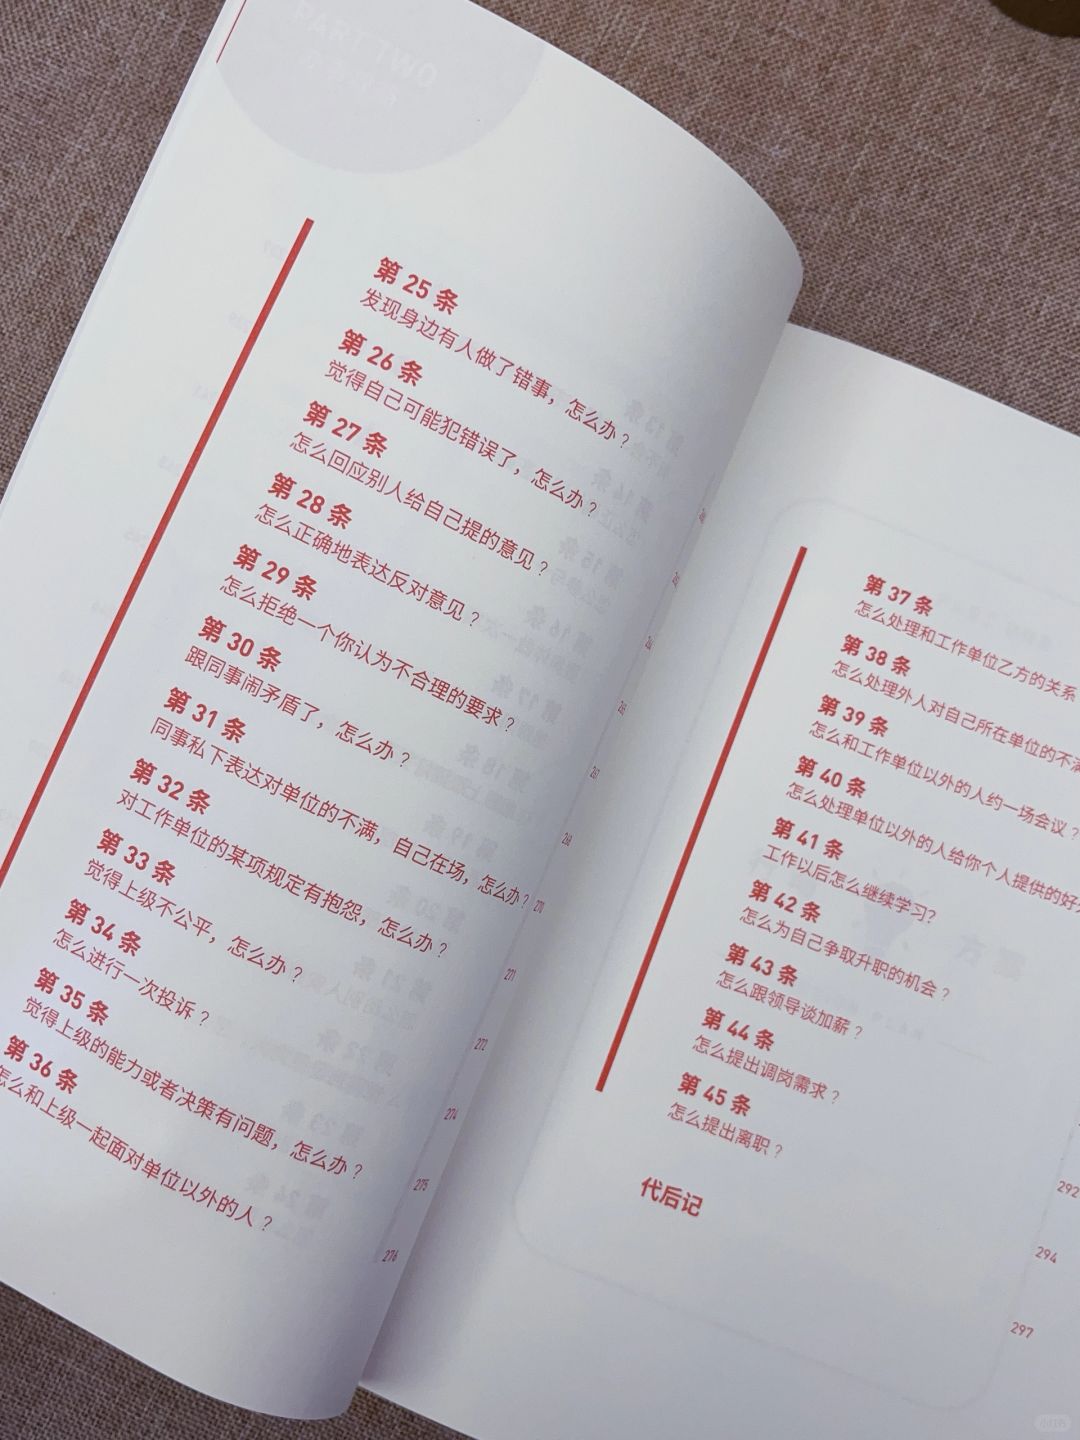 第 25 条
发现身边有人做了错事，怎么办？
第 26 条
觉得自己可能犯错误了，怎么办？
第 27 条
怎么回应别人给自己提的意见？
第 28 条
怎么正确地表达反对意见？
第 29 条
怎么拒绝一个你认为不合理的要求？
第 30 条
跟同事闹矛盾了，怎么办？
第 31 条
同事私下表达对单位的不满，自己在场，怎么办？ 270
第 32 条
对工作单位的某项规定有抱怨，怎么办？ 271
第 33 条
觉得上级不公平，怎么办？ 272
第 34 条
怎么进行一次投诉？ 274
第 35 条
觉得上级的能力或者决策有问题，怎么办？ 275
第 36 条
怎么和上级一起面对单位以外的人？ 276
第 37 条
怎么处理和工作单位乙方的关系
第 38 条
怎么处理外人对自己所在单位的不满
第 39 条
怎么和工作单位以外的人约一场会议？
第 40 条
怎么处理单位以外的人给你个人提供的好
第 41 条
工作以后怎么继续学习？
第 42 条
怎么为自己争取升职的机会？
第 43 条
怎么跟领导谈加薪？
第 44 条
怎么提出调岗需求？ 292
第 45 条
怎么提出离职？ 294
代后记 297